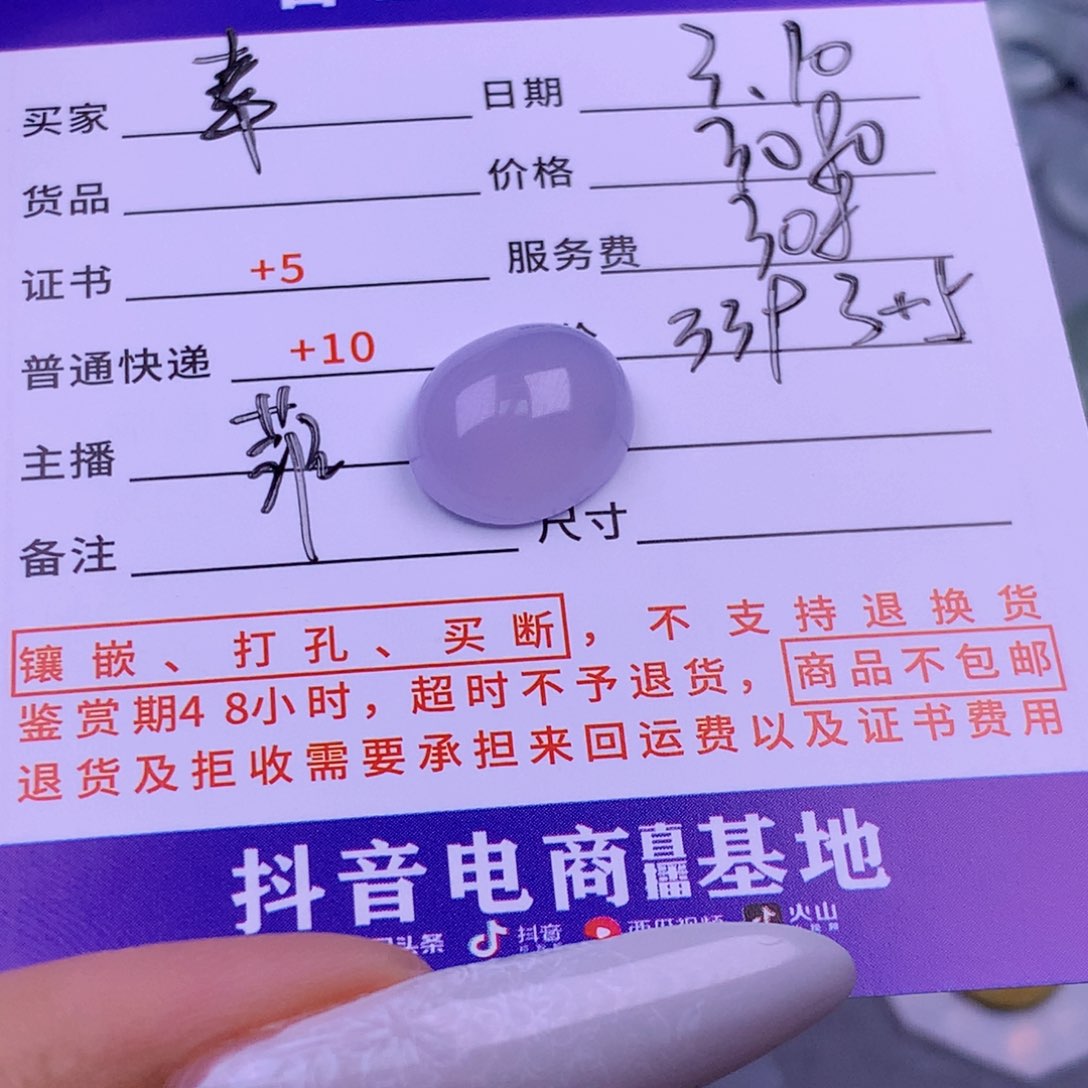 买家 日期 3.10
货品 价格 3080
证书 +5 服务费 308
普通快递 +10 价 33P 3+5
主播
备注 尺寸
镶嵌、打孔、买断，不支持退换货
鉴赏期48小时，超时不予退货，商品不包邮
退货及拒收需要承担来回运费以及证书费用
抖音电商直播基地
头条 抖音 西瓜视频 火山